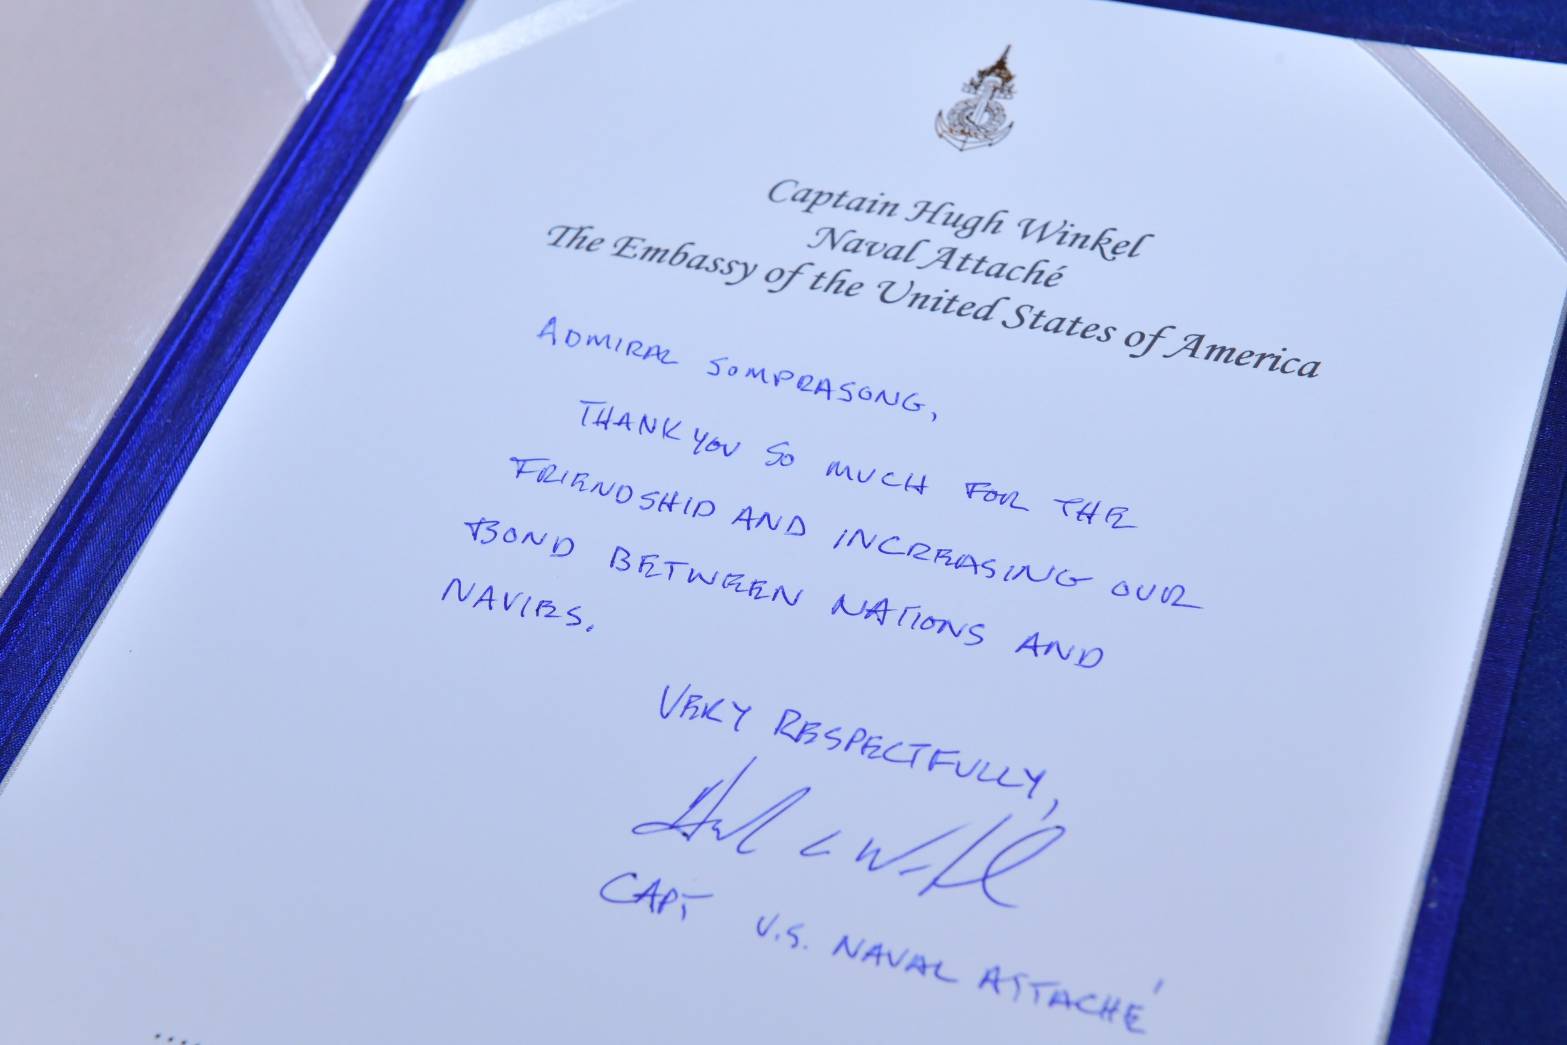 Captain Hugh Winkel
Naval Attaché
The Embassy of the United States of America
ADMIRAL SOMPRASONG,
THANK YOU SO MUCH FOR THE
FRIENDSHIP AND INCREASING OUR
BOND BETWEEN NATIONS AND
NAVIES.
VERY RESPECTFULLY,
CAPT U.S. NAVAL ATTACHÉ